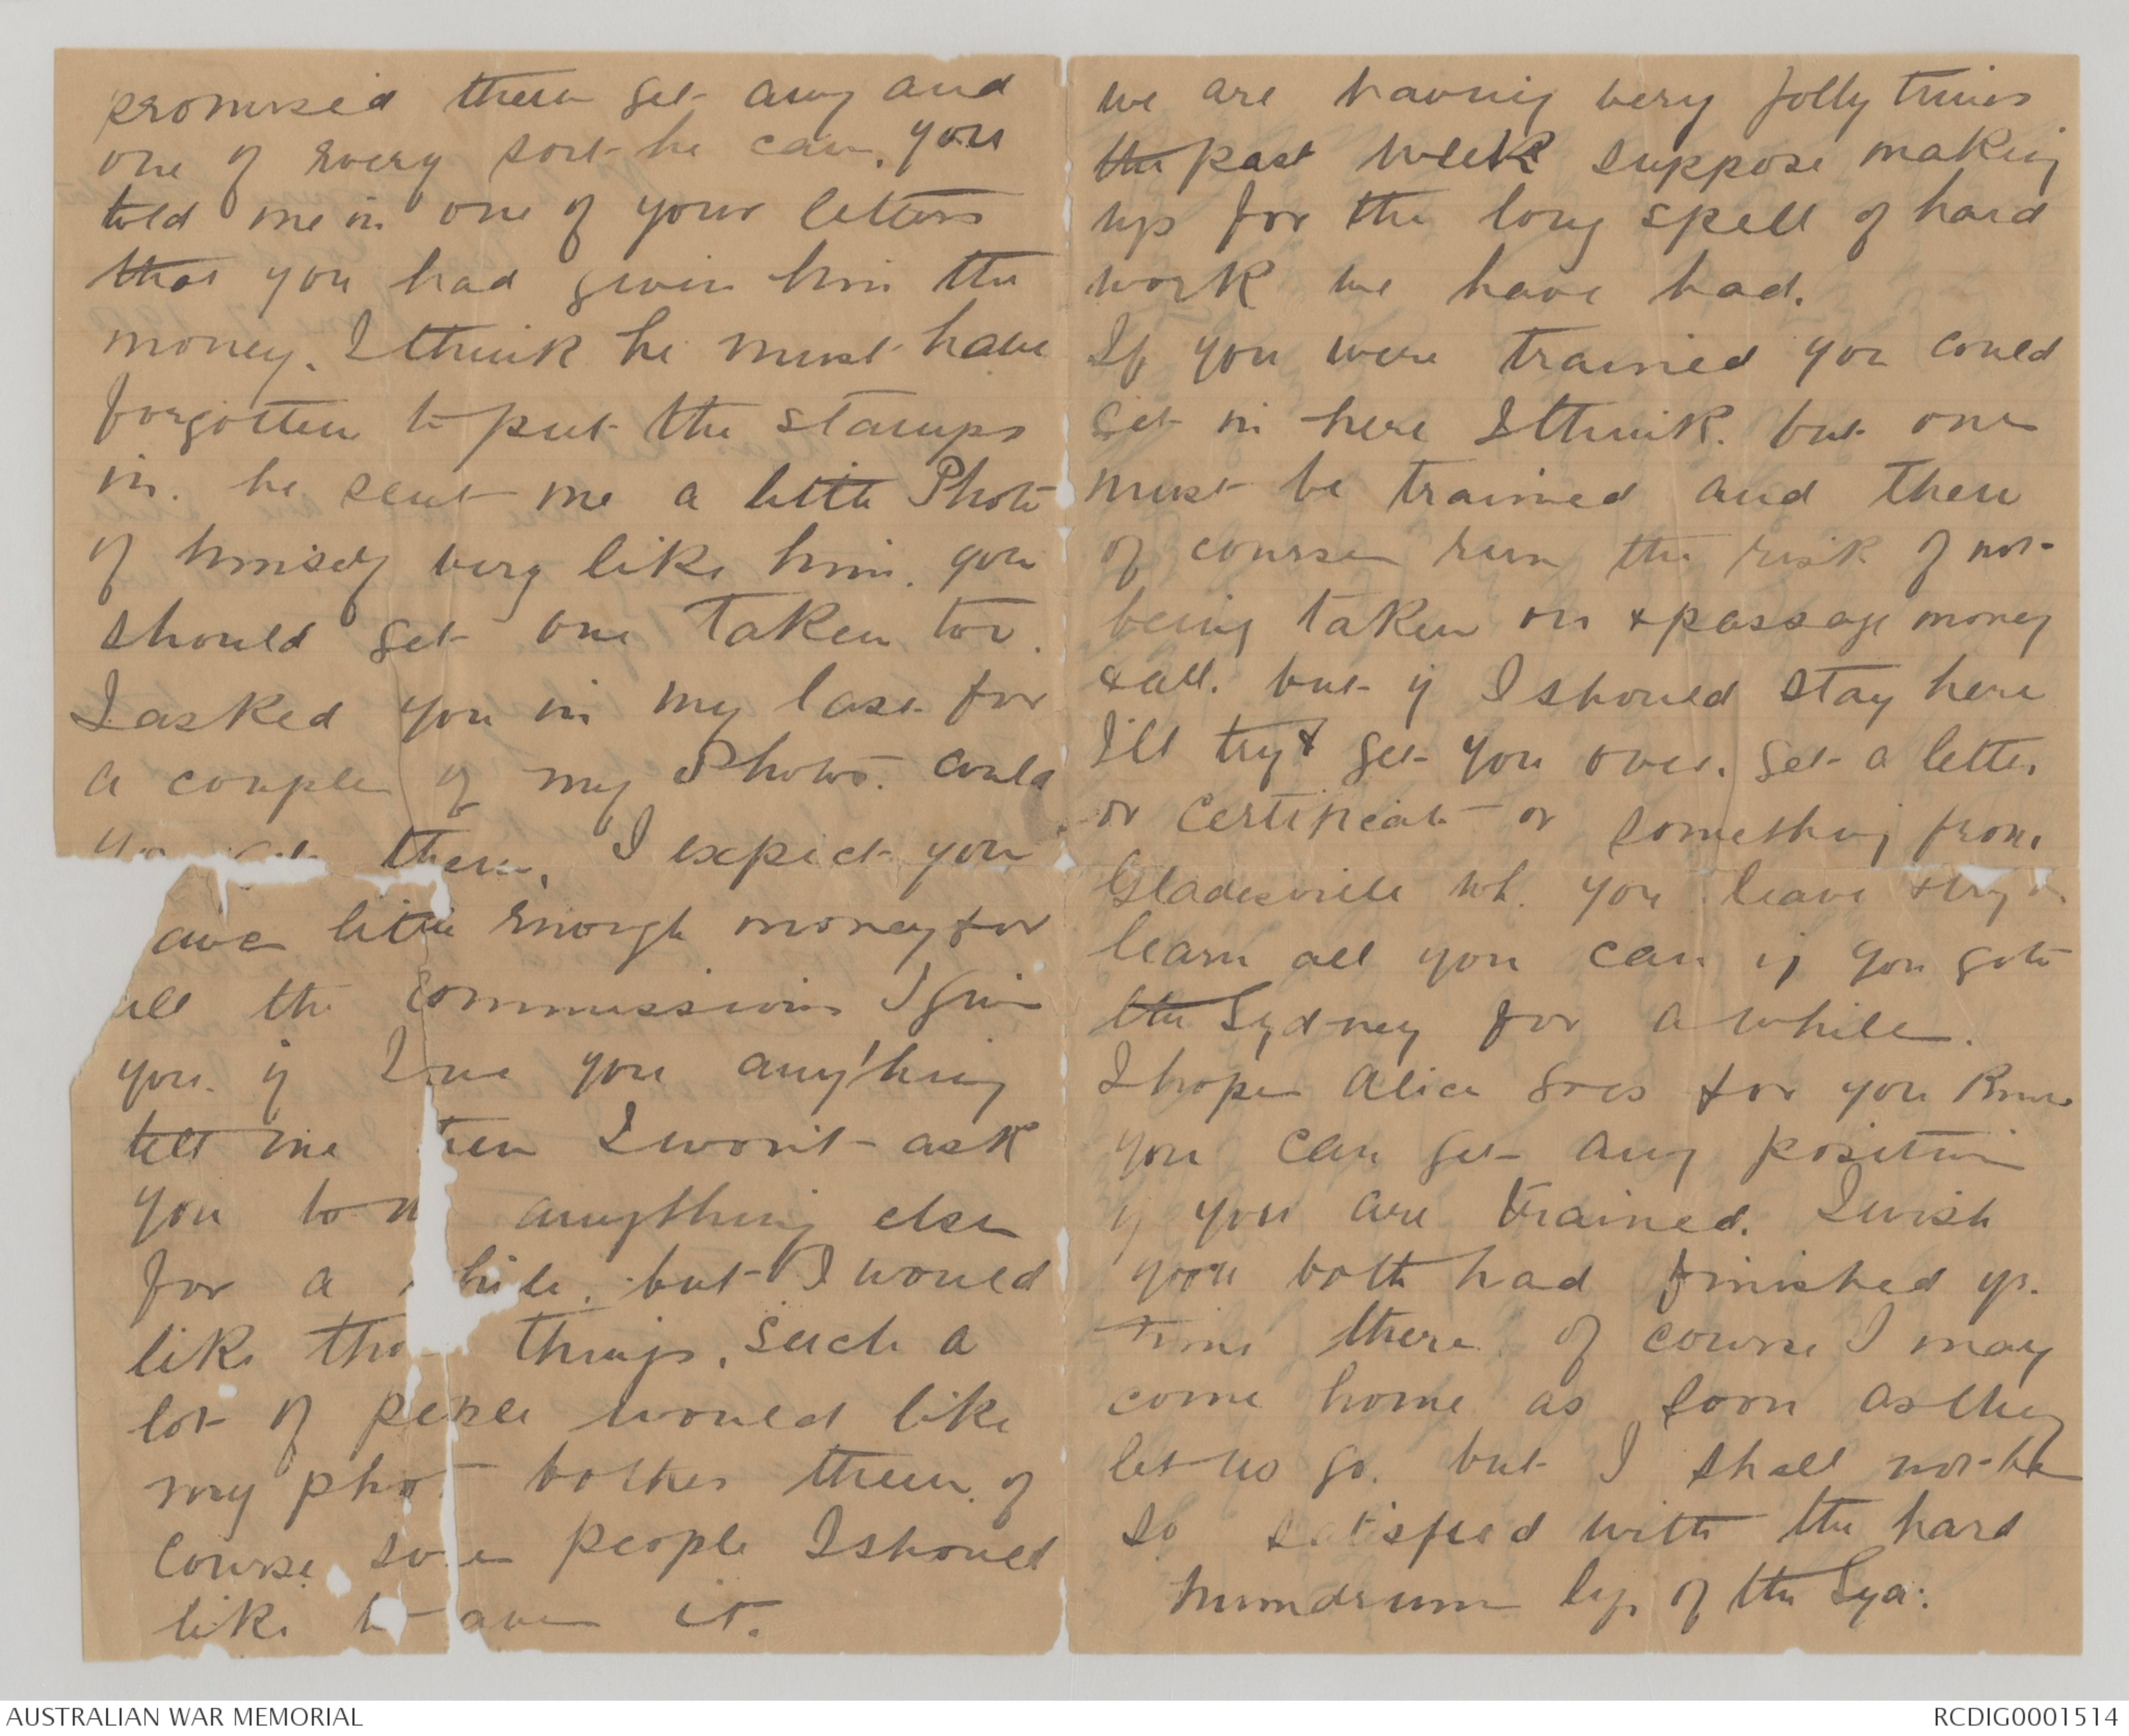 promised them get any and
one of every sort he can. you
told me in one of your letters
that you had given him the
money. I think he must have
forgotten to put the stamps
in. he sent me a little Photo
of himself very like him. you
should get one taken too.
I asked you in my last for
a couple of my Photos. could
them. I expect you
ave little enough money for
all the commissions I give
you. if I owe you anything
tell me then I won't ask
you to anything else
for a while. but I would
like tho things. Such a
lot of people would like
my phot bother them. of
course some people I should
like to ave it.
we are having very jolly times
the past week suppose making
up for the long spell of hard
work we have had.
If you were trained you could
get in here I think. but one
must be trained and then
of course run the risk of not
being taken on & passage money
& all. but if I should stay here
I'll try & get you over. get a letter
or certificate or something from
Gladesville wh. you leave & try &
learn all you can if you go to
the Sydney for a while.
I hope Alice goes for you know
you can get any position
if you are trained. I wish
you both had finished yr.
time there. of course I may
come home as soon as they
let us go. but I shall not be
so satisfied with the hard
humdrum life of the Syd:
AUSTRALIAN WAR MEMORIAL
RCDIG0001514